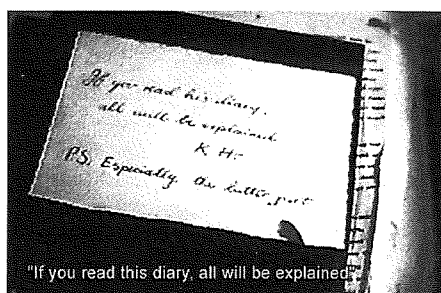 If you read his diary,
all will be explained
K H-
P.S. Especially the latter part
"If you read this diary, all will be explained."